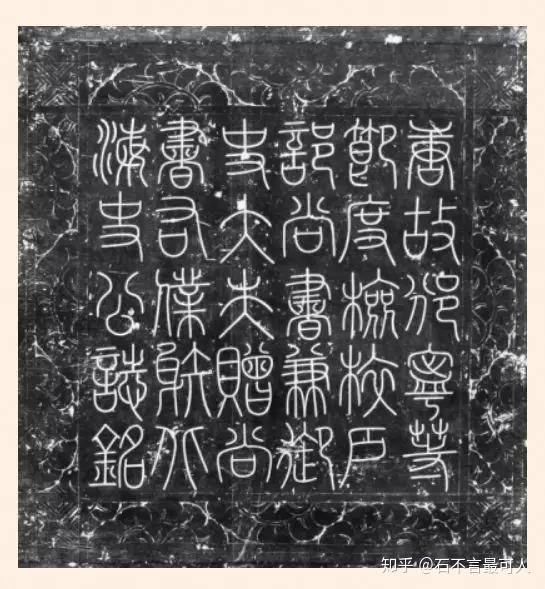 唐故邠寧等
節度檢校戶
部尚書兼御
史大夫贈尚
書右僕射北
海史公誌銘
知乎 @石不言最可人